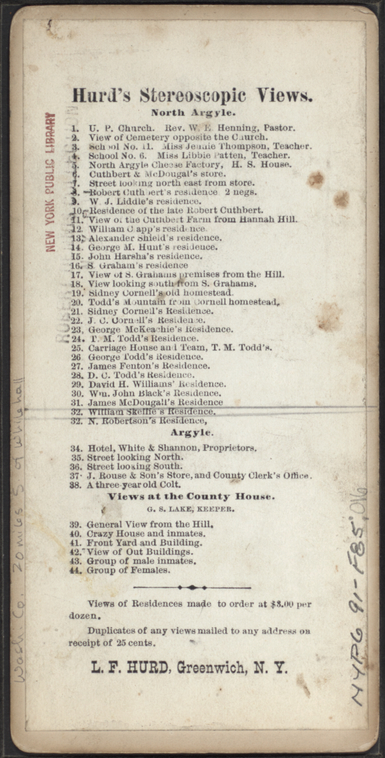 Hurd's Stereoscopic Views.
North Argyle.
1. U. P. Church. Rev. W. E. Henning, Pastor.
2. View of Cemetery opposite the Church.
3. School No. 11. Miss Jennie Thompson, Teacher.
4. School No. 6. Miss Libbie Patten, Teacher.
5. North Argyle Cheese Factory, H. S. House.
6. Cuthbert & McDougal's store.
7. Street looking north east from store.
8. Robert Cuthbert's residence. 2 negs.
9. W. J. Liddie's residence.
10. Residence of the late Robert Cuthbert.
11. View of the Cuthbert Farm from Hannah Hill.
12. William Clapp's residence.
13. Alexander Shield's residence.
14. George M. Hunt's residence.
15. John Harsha's residence.
16. S. Graham's residence
17. View of S. Grahams premises from the Hill.
18. View looking south from S. Grahams.
19. Sidney Cornell's old homestead.
20. Todd's Mountain from Cornell homestead.
21. Sidney Cornell's Residence.
22. J. C. Cornell's Residence.
23. George McKeachie's Residence.
24. T. M. Todd's Residence.
25. Carriage House and Team, T. M. Todd's.
26 George Todd's Residence.
27. James Fenton's Residence.
28. D. C. Todd's Residence.
29. David H. Williams' Residence.
30. Wm. John Black's Residence.
31. James McDougall's Residence
32. William Skellie's Residence.
32. N. Robertson's Residence,
Argyle.
34. Hotel, White & Shannon, Proprietors.
35. Street looking North.
36. Street looking South.
37. J. Rouse & Son's Store, and County Clerk's Office.
38. A three year old Colt.
Views at the County House.
G. S. LAKE, KEEPER.
39. General View from the Hill.
40. Crazy House and inmates.
41. Front Yard and Building.
42. View of Out Buildings.
43. Group of male inmates.
44. Group of Females.
Views of Residences made to order at $3.00 per
dozen.
Duplicates of any views mailed to any address on
receipt of 25 cents.
L. F. HURD, Greenwich, N. Y.
NEW YORK PUBLIC LIBRARY
Wash. Co. 20 miles S of Whitehall
NYPG 91-F85.016